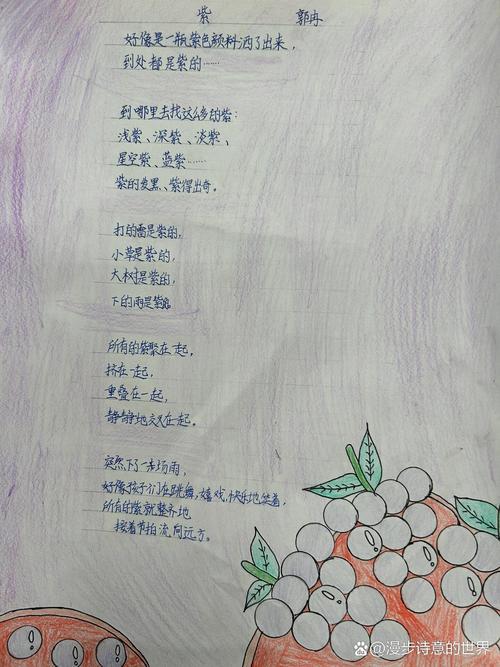 紫 郭冉
好像是一瓶紫色颜料洒了出来，
到处都是紫的……
到哪里去找这么多的紫：
浅紫、深紫、淡紫、
星空紫、蓝紫……
紫的发黑、紫得出奇。
打的雷是紫的，
小草是紫的，
大树是紫的，
下的雨是紫的
所有的紫聚在一起，
挤在一起，
重叠在一起，
静静地交叉在起。
突然下了一场雨，
好像孩子们在跳舞，嬉戏，快乐地笑着，
所有的紫就整齐地
按着节拍流向远方。
漫步诗意的世界